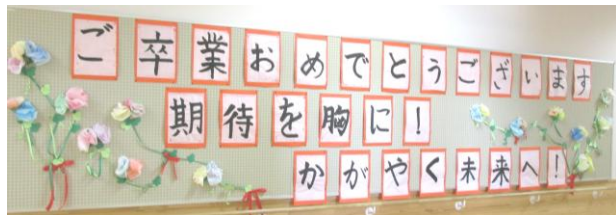 ご卒業おめでとうございます
期待を胸に！
かがやく未来へ！